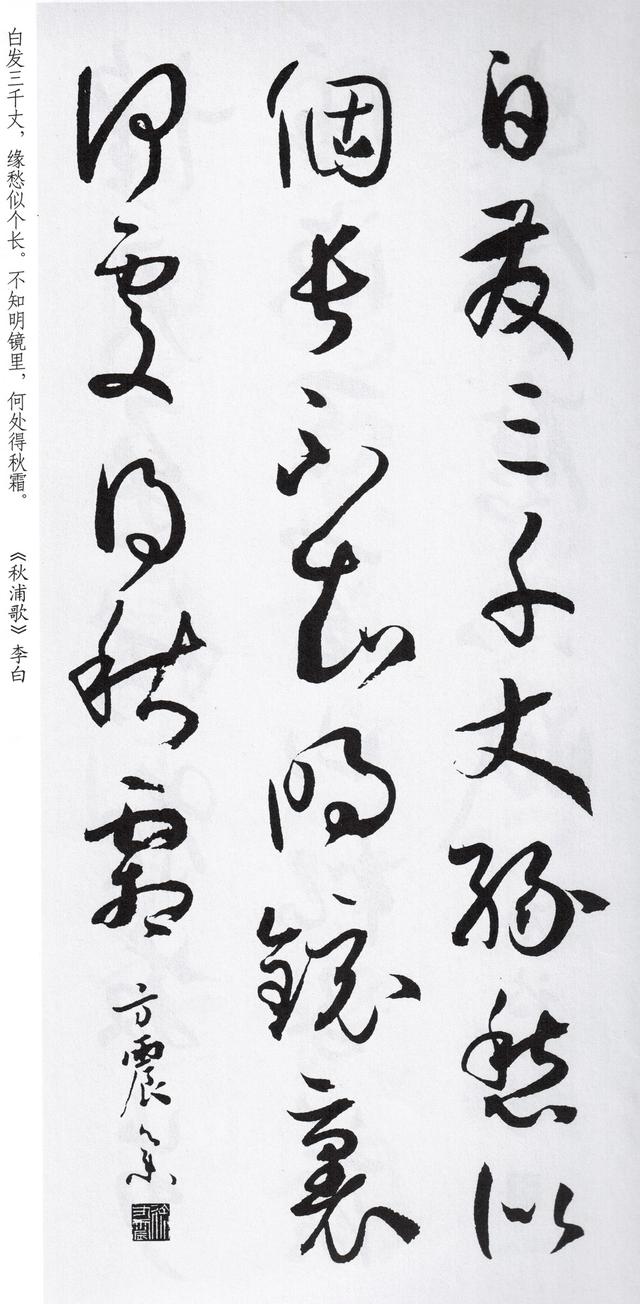 白发三千丈，缘愁似个长。不知明镜里，何处得秋霜。 《秋浦歌》李白
白发三千丈缘愁似
個长不知明镜裏
何处得秋霜 方震篆